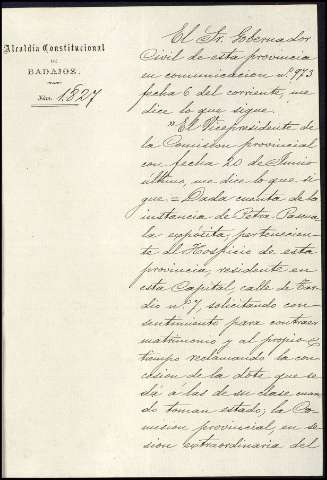 Alcaldía Constitucional
DE
BADAJOZ.
Núm. 1.827
El Sr. Gobernador
Civil de esta provincia
en comunicacion nº. 973
fecha 6 del corriente, me
dice lo que sigue.
"El Vicepresidente de
la Comision provincial
con fecha 20 de Junio
último, me dice lo que si
gue. = Dada cuenta de la
instancia de Petra Pascua
la expósita, perteneciente
te al Hospicio de esta
provincia, residente en
esta Capital, calle de
nº 7, solicitando con
sentimiento para contraer
matrimonio y al propio
tiempo reclamando la con
cesion de la dote que se
dá á las de su clase cuan
do toman estado; la Co
mision provincial, en se
sion extraordinaria del